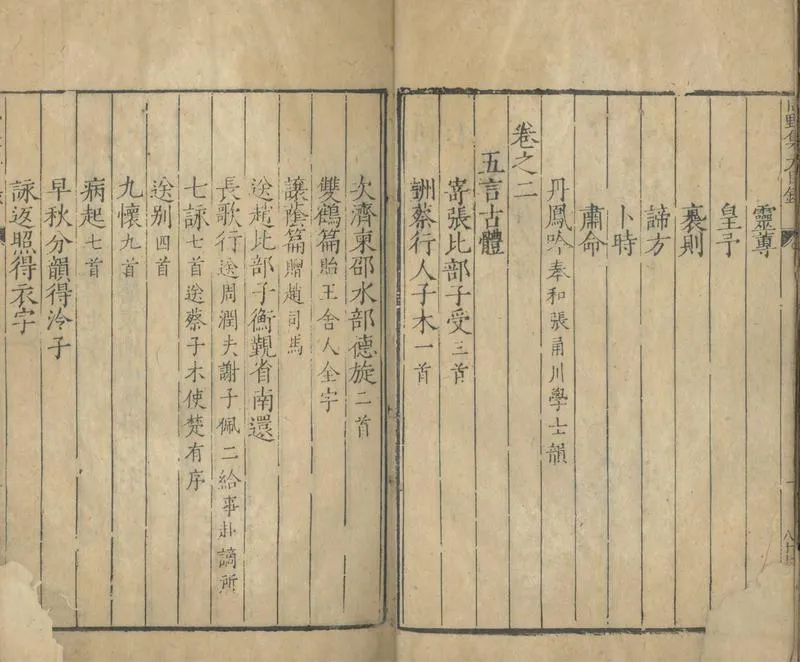 野集目錄
靈蓴
皇予
裒則
諦方
卜時
肅命
丹鳳吟奉和張甬川學士韻
卷之二
五言古體
寄張比部子受三首
酬蔡行人子木一首
次濟東邵水部德旋二首
雙鶴篇貽王舍人全宇
讓蔭篇贈趙司馬
送趙比部子衡覲省南還
長歌行送周潤夫謝子佩二給事赴謫所
七詠七首送蔡子木使楚有序
送别四首
九懷九首
病起七首
早秋分韻得泠子
詠返照得衣字